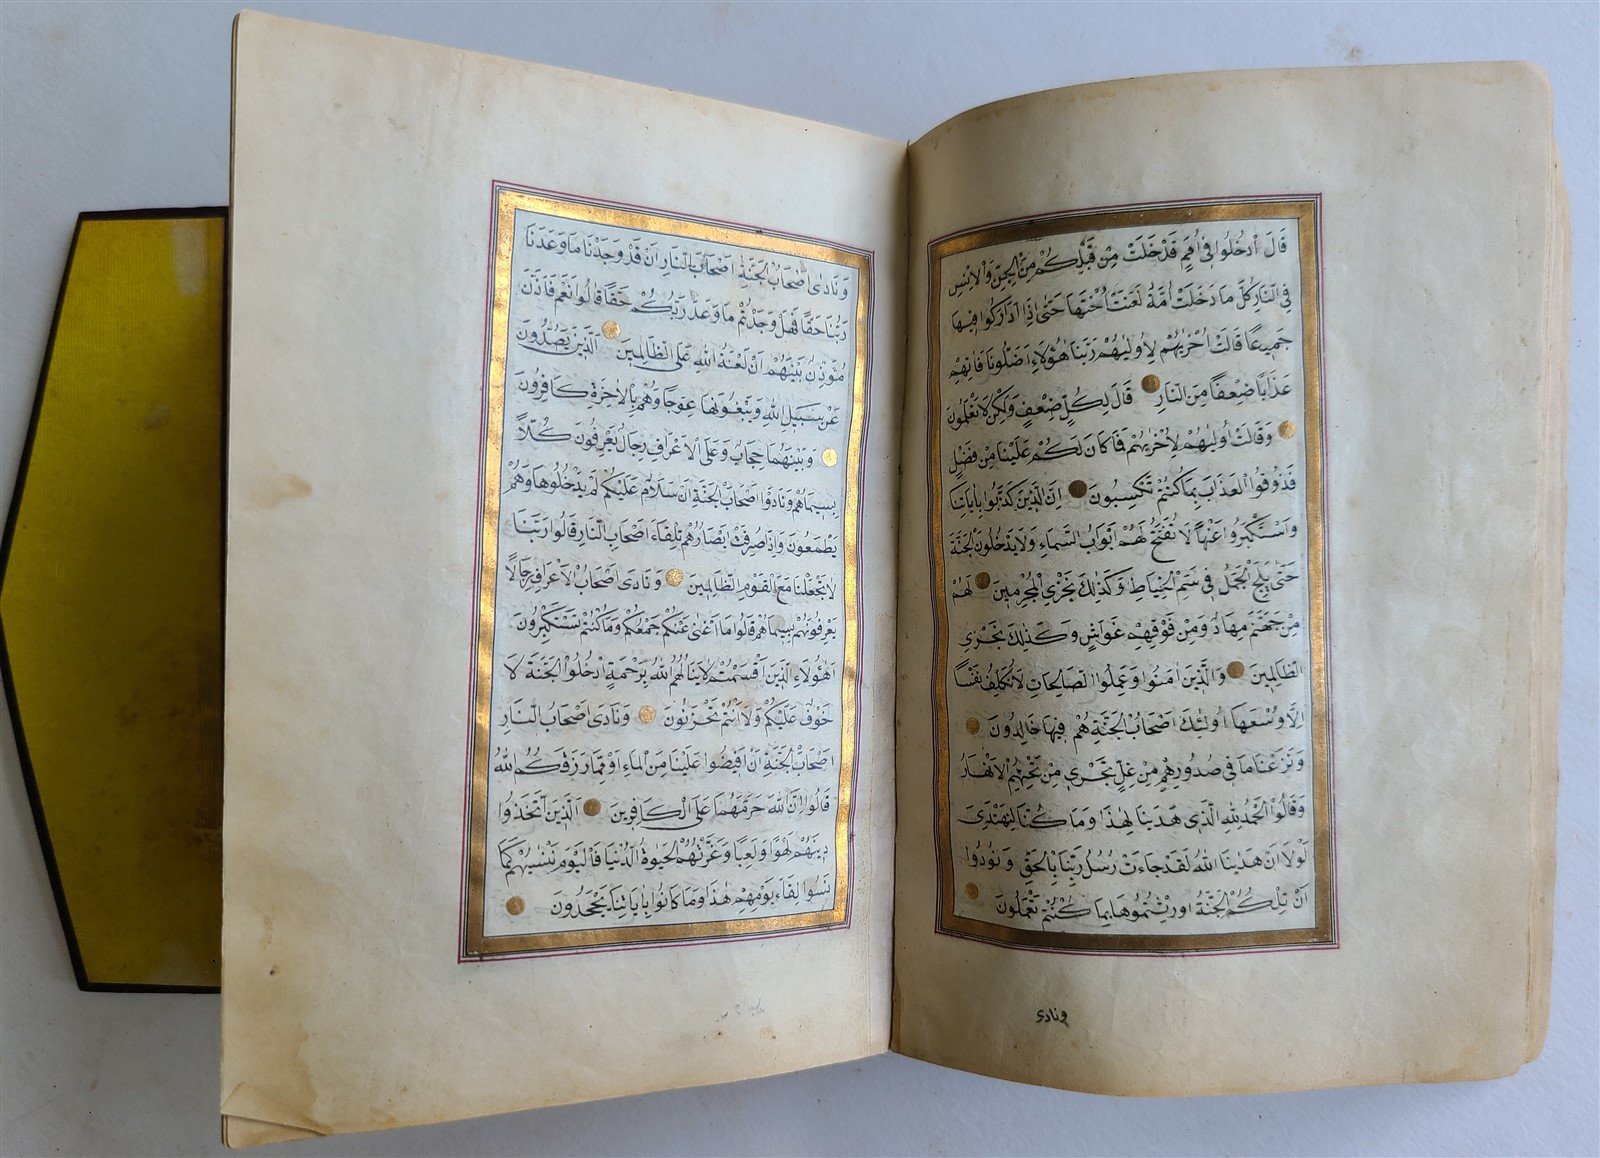 قَالَ ادْخُلُوا فِى اُمَمٍ قَدْ خَلَتْ مِنْ قَبْلِكُمْ مِنَ الْجِنِّ وَالْاِنْسِ
فِى النَّارِ كُلَّ مَا دَخَلَتْ اُمَّةٌ لَعَنَتْ اُخْتَهَا حَتّٰى اِذَا ادَّارَكُوا فِيهَا
جَمِيعًا قَالَتْ اُخْرٰيهُمْ لِاُولٰيهُمْ رَبَّنَا هٰؤُلَاءِ اَضَلُّونَا فَاٰتِهِمْ
عَذَابًا ضِعْفًا مِنَ النَّارِ قَالَ لِكُلٍّ ضِعْفٌ وَلٰكِنْ لَا تَعْلَمُونَ
وَقَالَتْ اُولٰيهُمْ لِاُخْرٰيهُمْ فَمَا كَانَ لَكُمْ عَلَيْنَا مِنْ فَضْلٍ
فَذُوقُوا الْعَذَابَ بِمَا كُنْتُمْ تَكْسِبُونَ اِنَّ الَّذِينَ كَذَّبُوا بِاٰيَاتِنَا
وَاسْتَكْبَرُوا عَنْهَا لَا تُفَتَّحُ لَهُمْ اَبْوَابُ السَّمَاءِ وَلَا يَدْخُلُونَ الْجَنَّةَ
حَتّٰى يَلِجَ الْجَمَلُ فِى سَمِّ الْخِيَاطِ وَكَذٰلِكَ نَجْزِي الْمُجْرِمِينَ لَهُمْ
مِنْ جَهَنَّمَ مِهَادٌ وَمِنْ فَوْقِهِمْ غَوَاشٍ وَكَذٰلِكَ نَجْزِي
الظَّالِمِينَ وَالَّذِينَ اٰمَنُوا وَعَمِلُوا الصَّالِحَاتِ لَا نُكَلِّفُ نَفْسًا
اِلَّا وُسْعَهَا اُولٰئِكَ اَصْحَابُ الْجَنَّةِ هُمْ فِيهَا خَالِدُونَ
وَنَزَعْنَا مَا فِى صُدُورِهِمْ مِنْ غِلٍّ تَجْرِى مِنْ تَحْتِهِمُ الْاَنْهَارُ
وَقَالُوا الْحَمْدُ لِلّٰهِ الَّذِى هَدٰينَا لِهٰذَا وَمَا كُنَّا لِنَهْتَدِىَ
لَوْلَا اَنْ هَدٰينَا اللّٰهُ لَقَدْ جَاءَتْ رُسُلُ رَبِّنَا بِالْحَقِّ وَنُودُوا
اَنْ تِلْكُمُ الْجَنَّةُ اُورِثْتُمُوهَا بِمَا كُنْتُمْ تَعْمَلُونَ
ونادى
وَنَادٰى اَصْحَابُ الْجَنَّةِ اَصْحَابَ النَّارِ اَنْ قَدْ وَجَدْنَا مَا وَعَدَنَا
رَبُّنَا حَقًّا فَهَلْ وَجَدْتُمْ مَا وَعَدَ رَبُّكُمْ حَقًّا قَالُوا نَعَمْ فَاَذَّنَ
مُؤَذِّنٌ بَيْنَهُمْ اَنْ لَعْنَةُ اللّٰهِ عَلَى الظَّالِمِينَ اَلَّذِينَ يَصُدُّونَ
عَنْ سَبِيلِ اللّٰهِ وَيَبْغُونَهَا عِوَجًا وَهُمْ بِالْاٰخِرَةِ كَافِرُونَ
وَبَيْنَهُمَا حِجَابٌ وَعَلَى الْاَعْرَافِ رِجَالٌ يَعْرِفُونَ كُلًّا
بِسِيمَاهُمْ وَنَادَوْا اَصْحَابَ الْجَنَّةِ اَنْ سَلَامٌ عَلَيْكُمْ لَمْ يَدْخُلُوهَا وَهُمْ
يَطْمَعُونَ وَاِذَا صُرِفَتْ اَبْصَارُهُمْ تِلْقَاءَ اَصْحَابِ النَّارِ قَالُوا رَبَّنَا
لَا تَجْعَلْنَا مَعَ الْقَوْمِ الظَّالِمِينَ وَنَادٰى اَصْحَابُ الْاَعْرَافِ رِجَالًا
يَعْرِفُونَهُمْ بِسِيمَاهُمْ قَالُوا مَا اَغْنٰى عَنْكُمْ جَمْعُكُمْ وَمَا كُنْتُمْ تَسْتَكْبِرُونَ
اَهٰؤُلَاءِ الَّذِينَ اَقْسَمْتُمْ لَا يَنَالُهُمُ اللّٰهُ بِرَحْمَةٍ اُدْخُلُوا الْجَنَّةَ لَا
خَوْفٌ عَلَيْكُمْ وَلَا اَنْتُمْ تَحْزَنُونَ وَنَادٰى اَصْحَابُ النَّارِ
اَصْحَابَ الْجَنَّةِ اَنْ اَفِيضُوا عَلَيْنَا مِنَ الْمَاءِ اَوْ مِمَّا رَزَقَكُمُ اللّٰهُ
قَالُوا اِنَّ اللّٰهَ حَرَّمَهُمَا عَلَى الْكَافِرِينَ اَلَّذِينَ اتَّخَذُوا
دِينَهُمْ لَهْوًا وَلَعِبًا وَغَرَّتْهُمُ الْحَيٰوةُ الدُّنْيَا فَالْيَوْمَ نَنْسٰيهُمْ كَمَا
نَسُوا لِقَاءَ يَوْمِهِمْ هٰذَا وَمَا كَانُوا بِاٰيَاتِنَا يَجْحَدُونَ